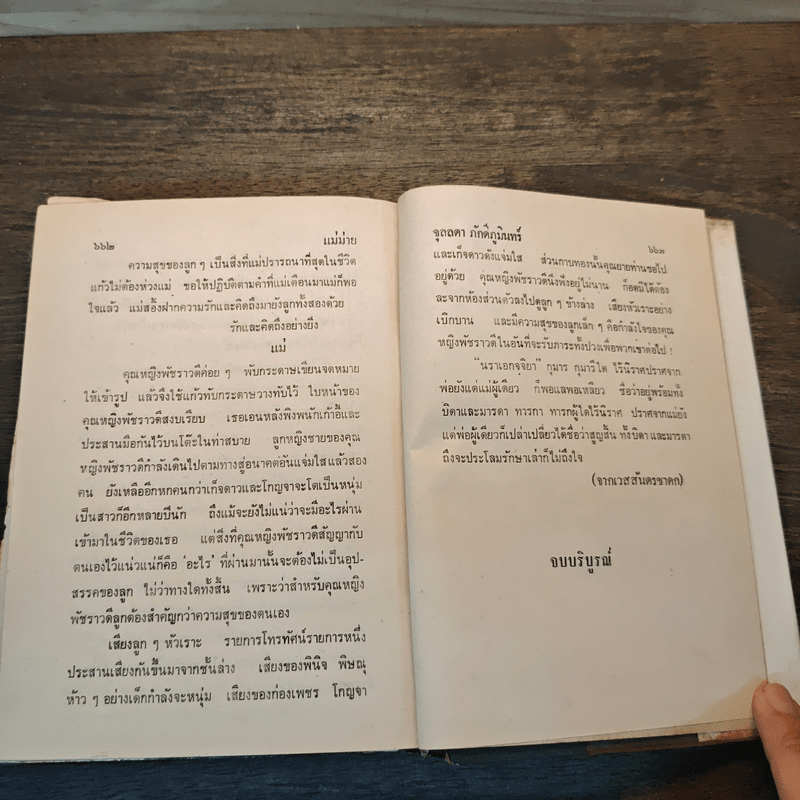 ๖๖๒
แม่ม่าย
ความสุขของลูก ๆ เป็นสิ่งที่แม่ปรารถนาที่สุดในชีวิต
แก้วไม่ต้องห่วงแม่ ขอให้ปฏิบัติตามคำที่แม่เตือนมาแม่ก็พอ
ใจแล้ว แม่สอิ้งฝากความรักและคิดถึงมายังลูกทั้งสองด้วย
รักและคิดถึงอย่างยิ่ง
แม่
คุณหญิงพัชราวดีค่อย ๆ พับกระดาษเขียนจดหมาย
ให้เข้ารูป แล้วจึงใช้แก้วทับกระดาษวางทับไว้ ใบหน้าของ
คุณหญิงพัชราวดีสงบเรียบ เธอเอนหลังพิงพนักเก้าอี้และ
ประสานมือกันไว้บนโต๊ะในท่าสบาย ลูกหญิงชายของคุณ
หญิงพัชราวดีกำลังเดินไปตามทางสู่อนาคตอันแจ่มใสแล้วสอง
คน ยังเหลืออีกหกคนกว่าเก็จดาวและโกญจาจะโตเป็นหนุ่ม
เป็นสาวก็อีกหลายปีนัก ถึงแม้จะยังไม่แน่ว่าจะมีอะไรผ่าน
เข้ามาในชีวิตของเธอ แต่สิ่งที่คุณหญิงพัชราวดีสัญญากับ
ตนเองไว้แน่วแน่ก็คือ ‘อะไร’ ที่ผ่านมานั้นจะต้องไม่เป็นอุป-
สรรคของลูก ไม่ว่าทางใดทั้งสิ้น เพราะว่าสำหรับคุณหญิง
พัชราวดีลูกต้องสำคัญกว่าความสุขของตนเอง
เสียงลูก ๆ หัวเราะ รายการโทรทัศน์รายการหนึ่ง
ประสานเสียงกันขึ้นมาจากชั้นล่าง เสียงของพินิจ พิษณุ
ห้าว ๆ อย่างเด็กกำลังจะหนุ่ม เสียงของก่องเพชร โกญจา
จุลลดา ภักดีภูมินทร์
๖๖๓
และเก็จดาวดังแจ่มใส ส่วนกาบทองนั้นคุณยายท่านขอไป
อยู่ด้วย คุณหญิงพัชราวดีนั่งฟังอยู่ไม่นาน ก็อดมิได้ต้อง
ละจากห้องส่วนตัวลงไปดูลูก ๆ ข้างล่าง เสียงหัวเราะอย่าง
เบิกบาน และมีความสุขของลูกเล็ก ๆ คือกำลังใจของคุณ
หญิงพัชราวดีในอันที่จะรับภาระทั้งปวงเพื่อพวกเขาต่อไป !
“นราเอกจจิยา” กุมาร กุมารีใด ไร้นิราศปราศจาก
พ่อยังแต่แม่ผู้เดียว ก็พอแลพอเหลียว ชื่อว่าอยู่พร้อมทั้ง
บิดาและมารดา ทารกา ทารกผู้ใดไร้นิราศ ปราศจากแม่ยัง
แต่พ่อผู้เดียวก็เปล่าเปลี่ยวได้ชื่อว่าสูญสิ้น ทั้งบิดาและมารดา
ถึงจะประโลมรักษาเล่าก็ไม่ถึงใจ
(จากเวสสันดรชาดก)
จบบริบูรณ์